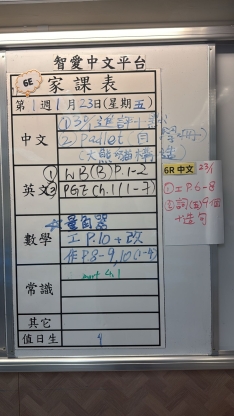 智愛中文平台
6E
家課表
第1週1月23日(星期五)
中文
①3冊進評
②Padlet(自
(大熊貓構造
英文
① WB(B) P.1-2
② PGE Ch.1 (1-7)
6R 中文 23/1
①工P.6-8
②詞(5)9個
+造句
數學
☆量角器
工 P.10 + 改
作P.8-9,10(1-4)
常識
part 4.1
其它
值日生
4